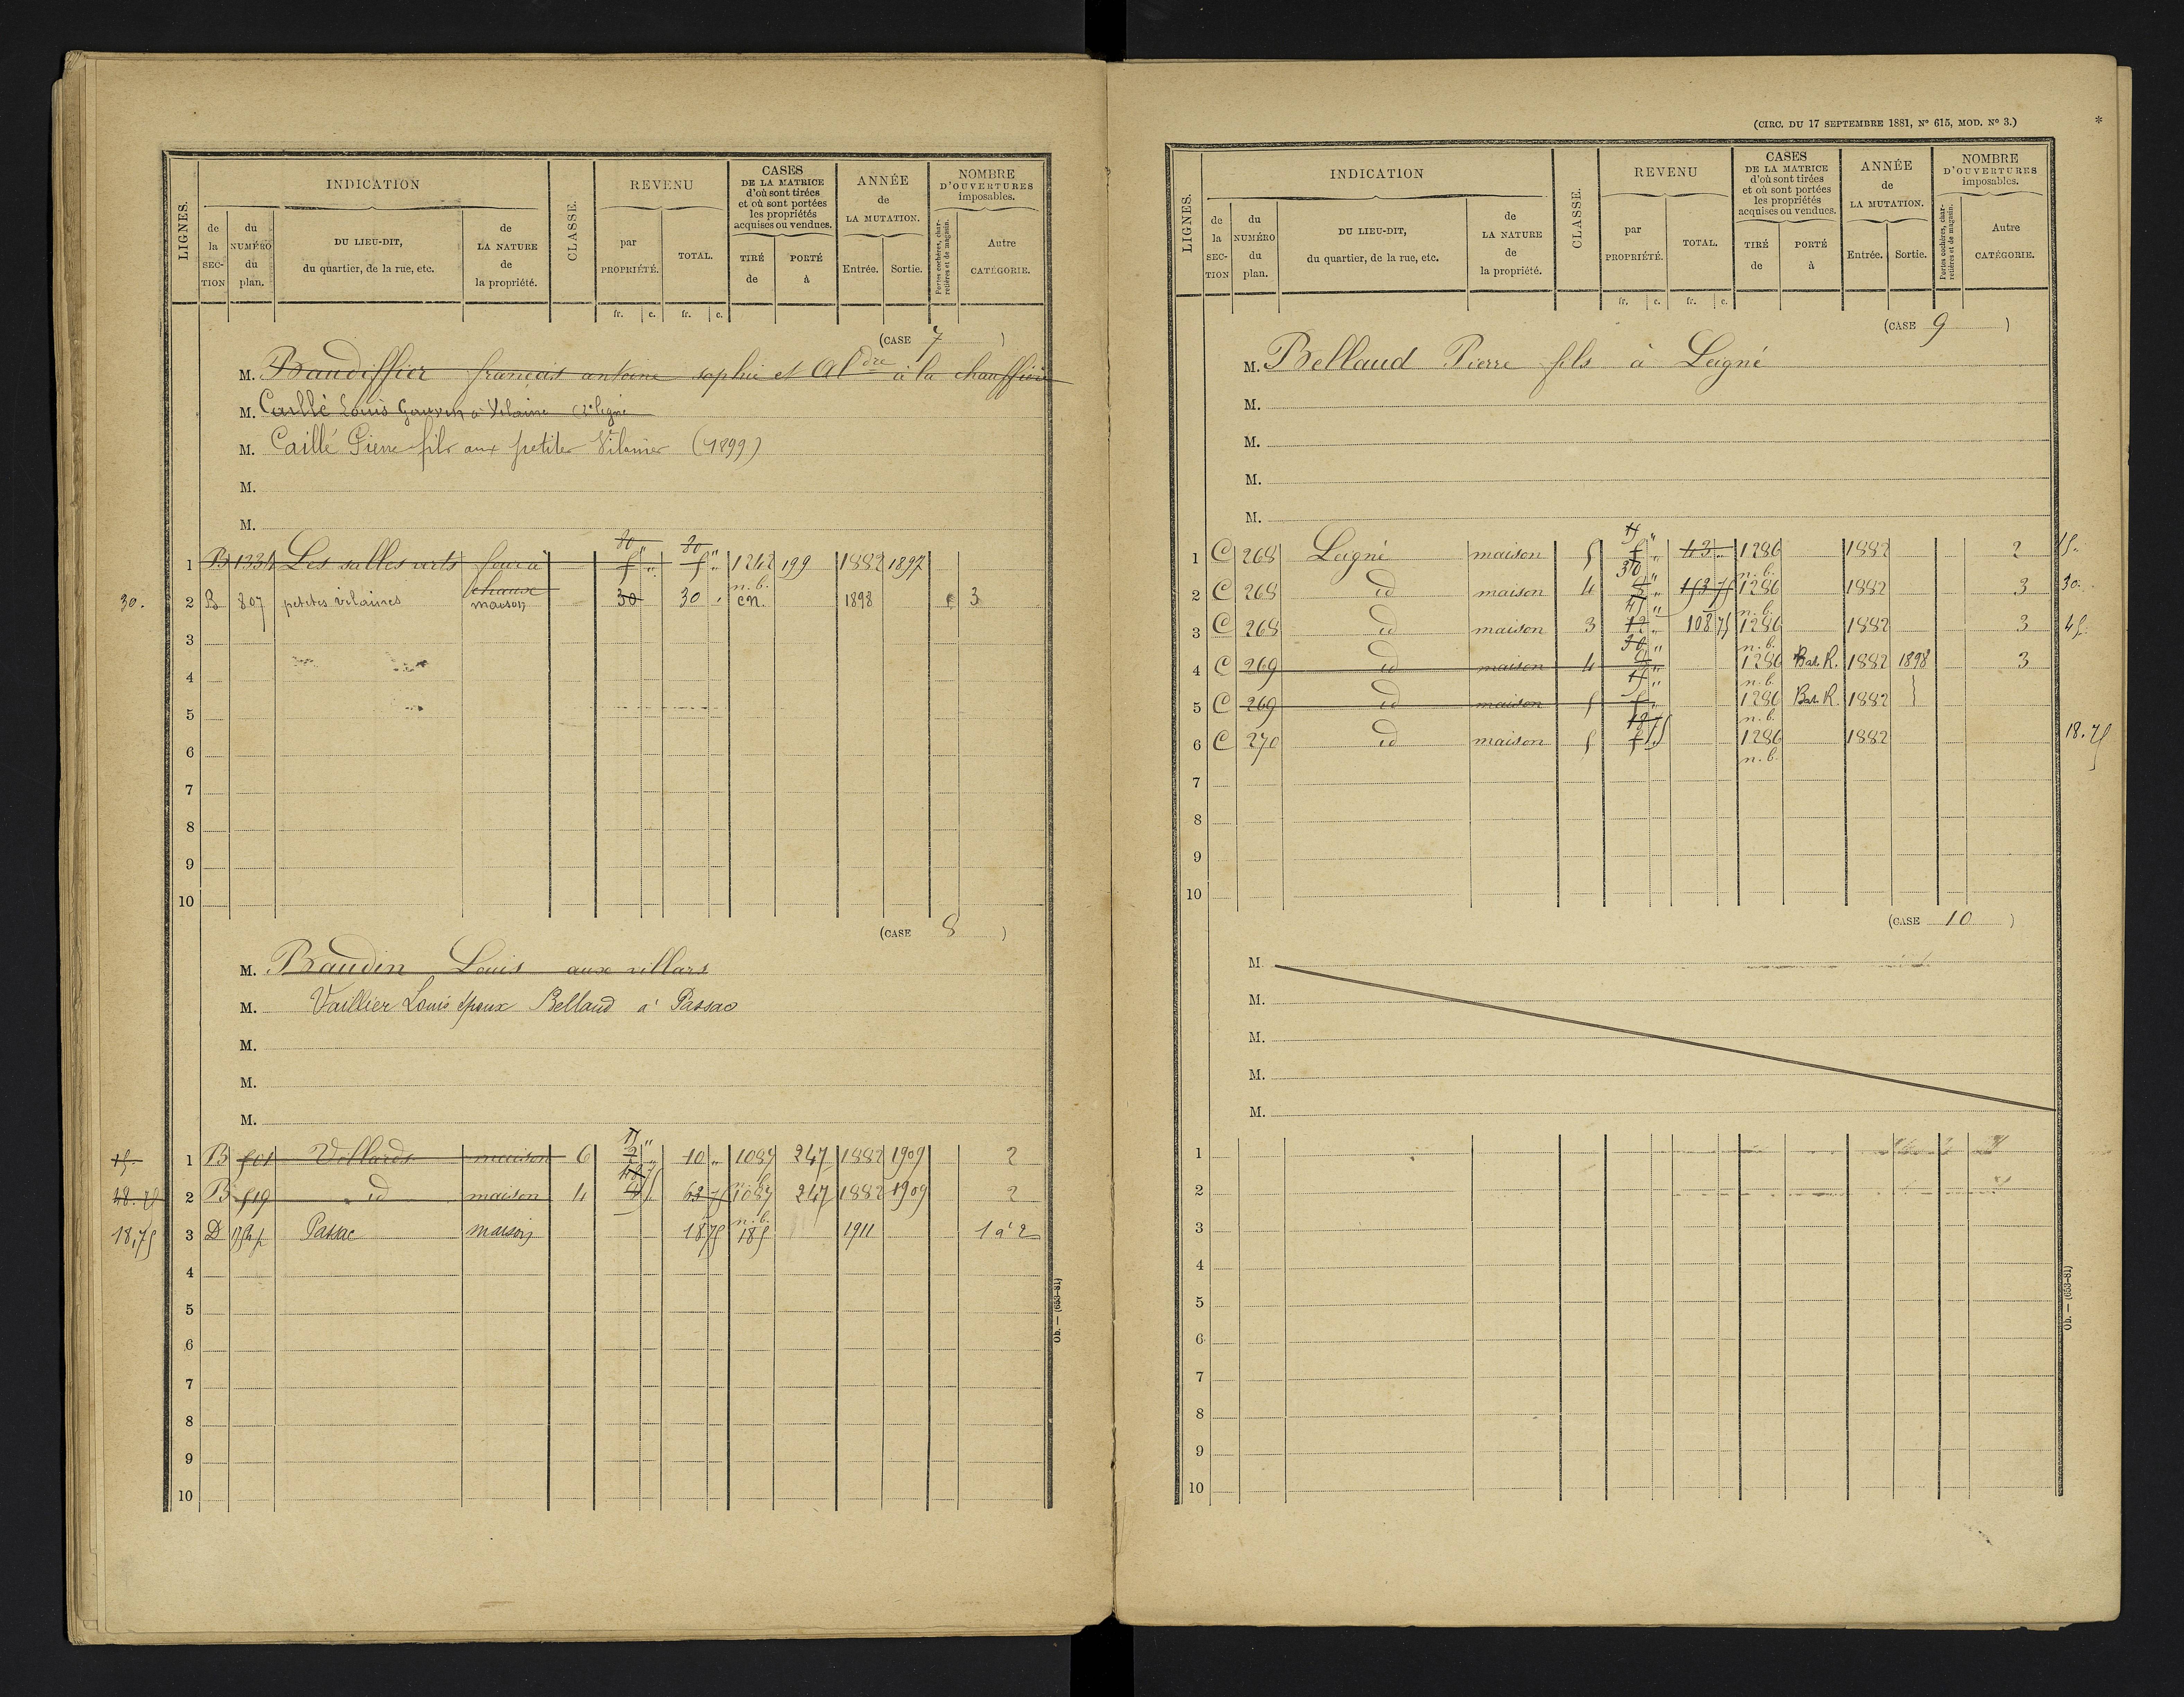 LIGNES.
INDICATION
CLASSE.
REVENU
CASES DE LA MATRICE d'où sont tirées et où sont portées les propriétés acquises ou vendues.
ANNÉE de LA MUTATION.
NOMBRE D'OUVERTURES imposables.
de la SECTION
du NUMÉRO du plan.
DU LIEU-DIT, du quartier, de la rue, etc.
de LA NATURE de la propriété.
par PROPRIÉTÉ.
TOTAL.
TIRÉ de
PORTÉ à
Entrée.
Sortie.
Portes cochères, charretières et de magasin.
Autre CATÉGORIE.
fr. c. fr. c.
(CASE 7 )
M. Baudiffier français antoine sophie et Aldre à la chauffrie
M. Caillé Louis à Vilaine
M. Caillé Pierre fils aux petites Vilaines (1899)
M.
M.
1 B 1334 Les salles verts four à chaux 1242 199 1882 1897
30. 2 B 807 petites vilaines maison 30 30 n.b. en. 1898 3
3
4
5
6
7
8
9
10
(CASE 8 )
M. Baudin Louis aux villars
M. Vaillier Louis époux Bellaud à Passac
M.
M.
M.
15. 1 B 501 Villards maison 6 15 " 10 " 1089 247 1882 1909 2
48.75 2 B 519 id maison 4 48 75 63 75 1089 247 1882 1909 2
18,75 3 D Passac maison 18 75 n.b. 185 1911 1 à 2
4
5
6
7
8
9
10
Ob. — (653-81)
(CIRC. DU 17 SEPTEMBRE 1881, N° 615, MOD. N° 3.) *
LIGNES.
INDICATION
CLASSE.
REVENU
CASES DE LA MATRICE d'où sont tirées et où sont portées les propriétés acquises ou vendues.
ANNÉE de LA MUTATION.
NOMBRE D'OUVERTURES imposables.
de la SECTION
du NUMÉRO du plan.
DU LIEU-DIT, du quartier, de la rue, etc.
de LA NATURE de la propriété.
par PROPRIÉTÉ.
TOTAL.
TIRÉ de
PORTÉ à
Entrée.
Sortie.
Portes cochères, charretières et de magasin.
Autre CATÉGORIE.
fr. c. fr. c.
(CASE 9 )
M. Bellaud Pierre fils à Leigné
M.
M.
M.
M.
1 C 268 Leigné maison 5 15 " 5 " 43 1286 n.b. 1882 2 15.
2 C 268 id maison 4 30 " 153 75 1286 n.b. 1882 3 30.
3 C 268 id maison 3 45 " 12 " 108 75 1286 n.b. 1882 3 45.
4 C 269 id maison 4 30 " 1286 n.b. Bat. R. 1882 1898 3
5 C 269 id maison 5 15 " 5 " 1286 n.b. Bat. R. 1882
6 C 270 id maison 5 18 75 1286 n.b. 1882 18.75
7
8
9
10
(CASE 10 )
M.
M.
M.
M.
M.
1
2
3
4
5
6
7
8
9
10
Ob. — (653-81)